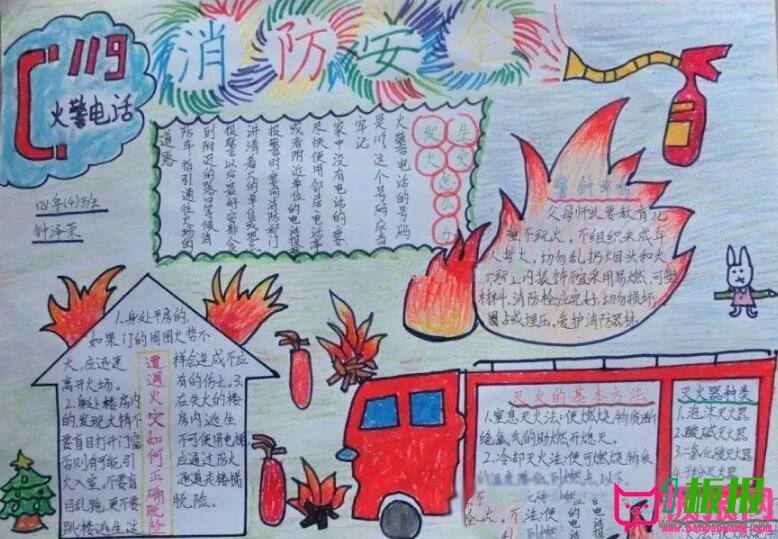 消防安全
119
火警电话
四年(4)班
发生
火灾
怎么
办
火警电话的号码
是119这个号码应当
牢记
家中没有电话的要
尽快使用邻居电话亭
或者附近单位的电话报警
报警时要向消防部门
讲清着火的单位或
报警以后最好安排人
到附近的路口等候消
防车指引通往火场的
道路
父母师长要教育儿
童不玩火。不组织未成年
人救火。切勿乱扔烟头和火
上内装饰不宜采用易燃、可
材料。消防栓应完好，切勿损坏、
圈占或埋压。爱护消防器材
1.身处平房的，
如果门的周围火势不
大，应迅速
离开火场。
2.身处楼房内
的发现火情不
要盲目打开门窗
否则有可能引
火入室，不要盲
目乱跑，更不要
跳楼逃生，这
遭遇火灾如何正确脱险
样会造成不应
有的伤亡。3.
在失火的楼
房内逃生
不可使用电梯
应通过防火
通道走楼梯
脱险。
灭火的基本方法
1.窒息灭火法：使燃烧物质断
绝氧气的助燃而熄灭。
2.冷却灭火法：使可燃烧物质
的温度降低到燃点以下
灭火器种类
1.泡沫灭火器
2.酸碱灭火器
3.二氧化碳灭火器
4.干粉灭火器
板报